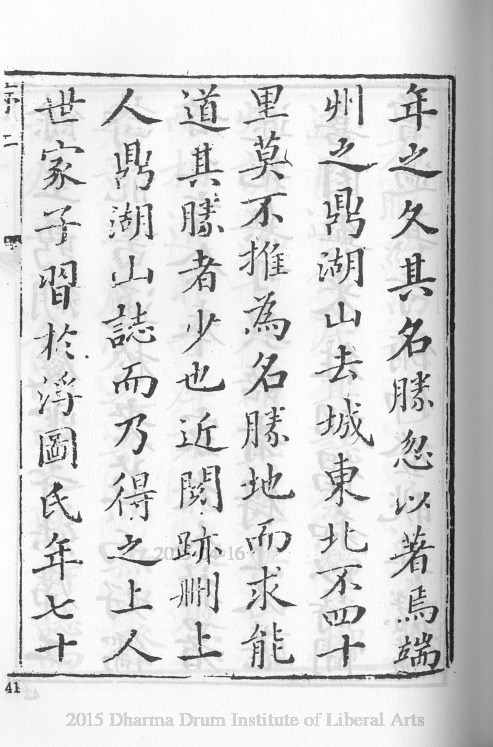 年之久其名勝忽以著焉端
州之鼎湖山去城東北不四十
里莫不推為名勝地而求能
道其勝者少也近閱跡刪上
人鼎湖山誌而乃得之上人
世家子習於浮圖氏年七十
序二
41
2015 Dharma Drum Institute of Liberal Arts